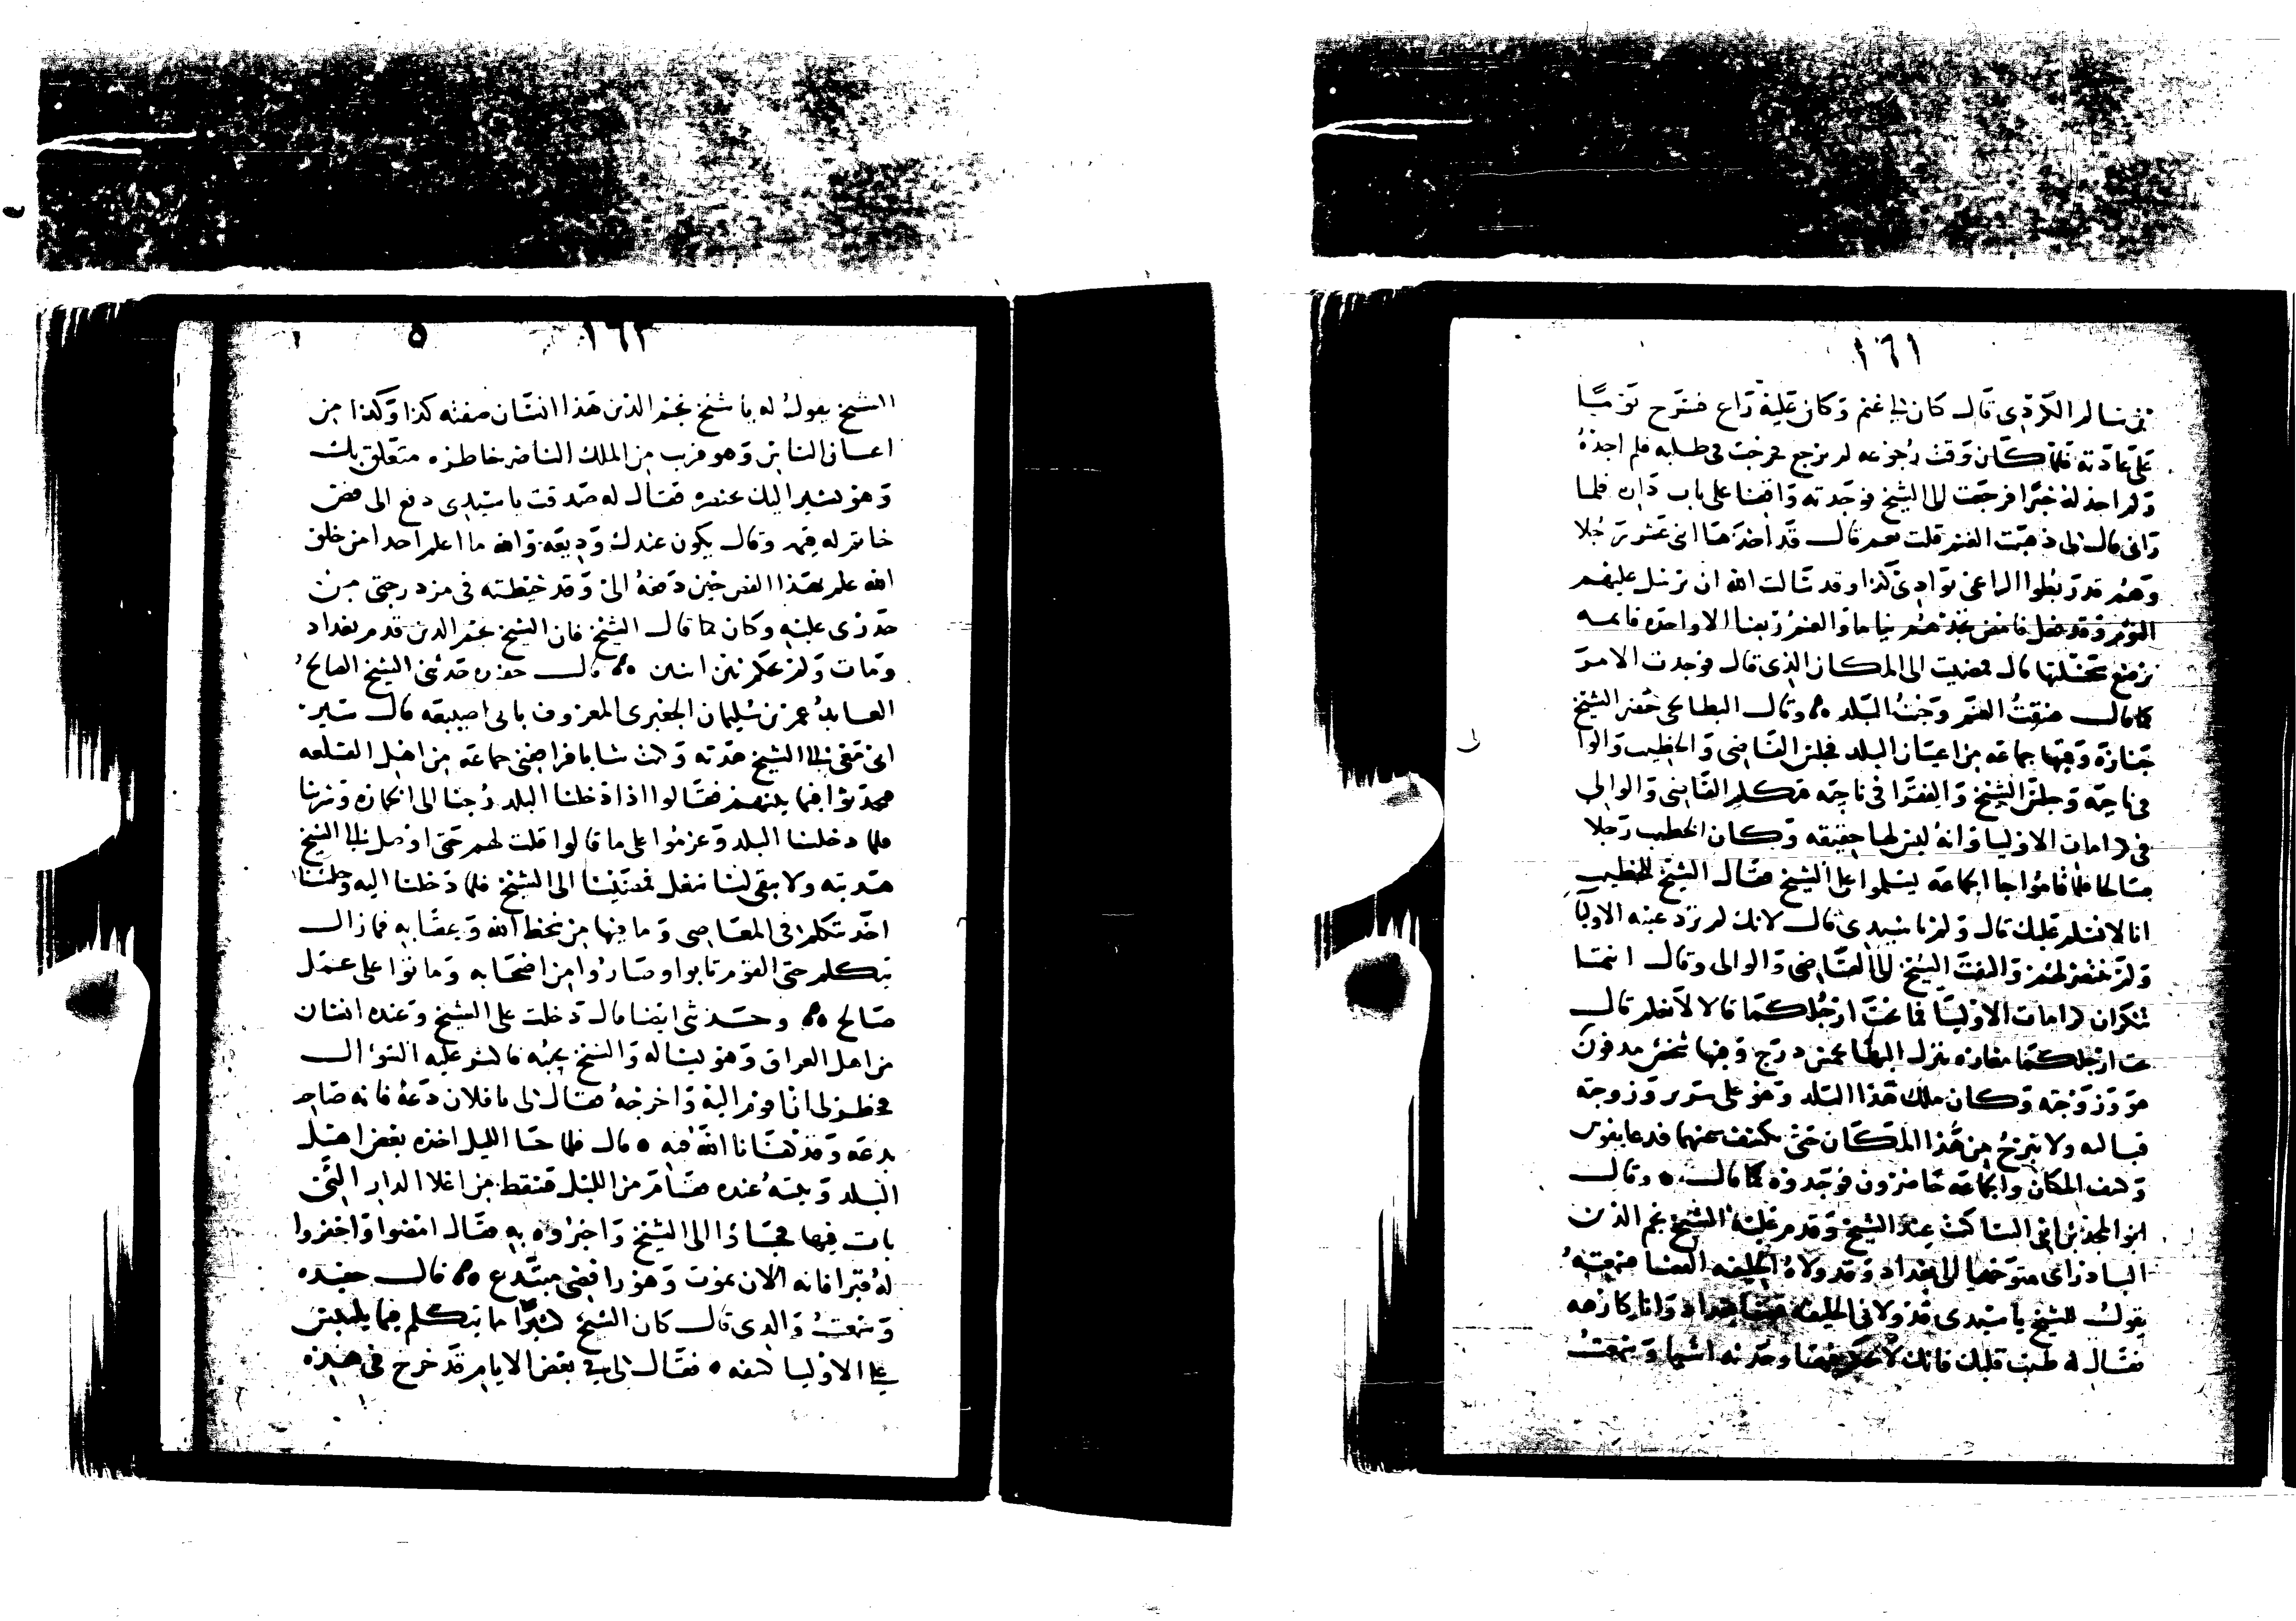 ١٦١
بن سالم الكردي قال كان لي غنم وكان عليه راع فسرح يوما
على عادته فلما كان وقت رجوعه لم يرجع فخرجت في طلبه فلم اجده
ولم اجد له خبرا فرجعت الى الشيخ فوجدته واقفا على باب داره فلما
رآني قال لي ذهبت الغنم قلت نعم قال قد اخذها اثني عشر رجلا
وهم قد ربطوا الراعي بوادي كذا وقد سالت الله ان يرسل عليهم
النوم وقد فعل فامض تجدهم نياما والغنم ربضا الا واحدة قائمه
ترضع سخلتها قال فمضيت الى المكان الذي قال فوجدت الامر
كما قال فسقت الغنم وجئت البلد وقال البطايحي حضر الشيخ
جنازة وفيها جماعة من اعيان البلد فجلس القاضي والخطيب والوالي
في ناحية وجلس الشيخ والفقرا في ناحية فتكلم القاضي والوالي
في كرامات الاوليا وانه ليس لها حقيقه وكان الخطيب رجلا
صالحا فلما قاموا جا الجماعة يسلموا على الشيخ فقال الشيخ للخطيب
انا لا اسلم عليك قال ولم يا سيدي قال لانك لم ترد غيبة الاوليا
ولم تنتصر لهم والتفت الشيخ الى القاضي والوالي وقال انتما
تنكران كرامات الاوليا فما تحت ارجلكما قالا لا نعلم قال
تحت ارجلكما مغارة ينزل اليها بخمس درج وفيها شخص مدفون
هو وزوجته وكان ملك هذا البلد وهو على سرير وزوجته
قبالته ولا نبرح من هذا المكان حتى نكشف عنهما فدعا بفوس
وكشف المكان والجماعة حاضرون فوجدوه كما قال وقال
ابو المجد بن ابي الثنا كنت عند الشيخ وقدم عليه الشيخ نجم الدين
البادرائي متوجها الى بغداد وقد ولاه الخليفه القضا فسمعته
يقول للشيخ يا سيدي قد ولاني الخليفة قضا بغداد وانا كاره
فقال له طيب قلبك فانك لا تحكم فيها وحدثه اشيا وسمعت
١٦٢
الشيخ يقول له يا شيخ نجم الدين هذا انسان صفته كذا وكذا من
اعيان الناس وهو قريب من الملك الناصر خاطره متعلق بك
وهو يشير اليك بخنصره فقال له صدقت يا سيدي دفع الى فص
خاتم له قيمة وقال يكون عندك وديعة والله ما اعلم احدا من خلق
الله علم بهذا الفص حين دفعه الي وقد خيطته في مزدرجتي من
حذري عليه وكان كما قال الشيخ فان الشيخ نجم الدين قدم بغداد
ومات ولم يحكم بين اثنين قال حفيده حدثني الشيخ الصالح
العابد عمر بن سليمان الجعبري المعروف بابي اصيبعه قال سير
ابي معي الى الشيخ هدية وكنت شابا فرافقني جماعة من اهل القلعه
فتحدثوا فيما بينهم فقالوا اذا دخلنا البلد رحنا الى الخماره وشربنا
فلما دخلنا البلد وعزموا على ما قالوا قلت لهم حتى اوصل الى الشيخ
هديته ولا يبقى لنا شغل فمضينا الى الشيخ فلما دخلنا اليه وجلسنا
اخذ يتكلم في المعاصي وما فيها من سخط الله وعقابه فما زال
يتكلم حتى القوم تابوا وصاروا من اصحابه وماتوا على عمل
صالح وحدثني ايضا قال دخلت على الشيخ وعنده انسان
من اهل العراق وهو يساله والشيخ يجيبه فالتبس عليه السؤال
فخطر لي ان اقوم اليه واخرجه فقال لي يا فلان دعه فانه صاحب
بدعة وقد كفانا الله فيه قال فلما جا الليل اخذه بعض اهل
البلد وبيته عنده فقام من الليل فسقط من اعلا الدار التي
بات فيها فجاؤا الى الشيخ واخبروه به فقال امضوا واحفروا
له قبرا فانه الان يموت وهو رافضي مبتدع قال حفيده
وسمعت والدي قال كان الشيخ كثيرا ما يتكلم فيما يلتبس
على الاوليا كشفه فقال لي في بعض الايام قد خرج في هذه